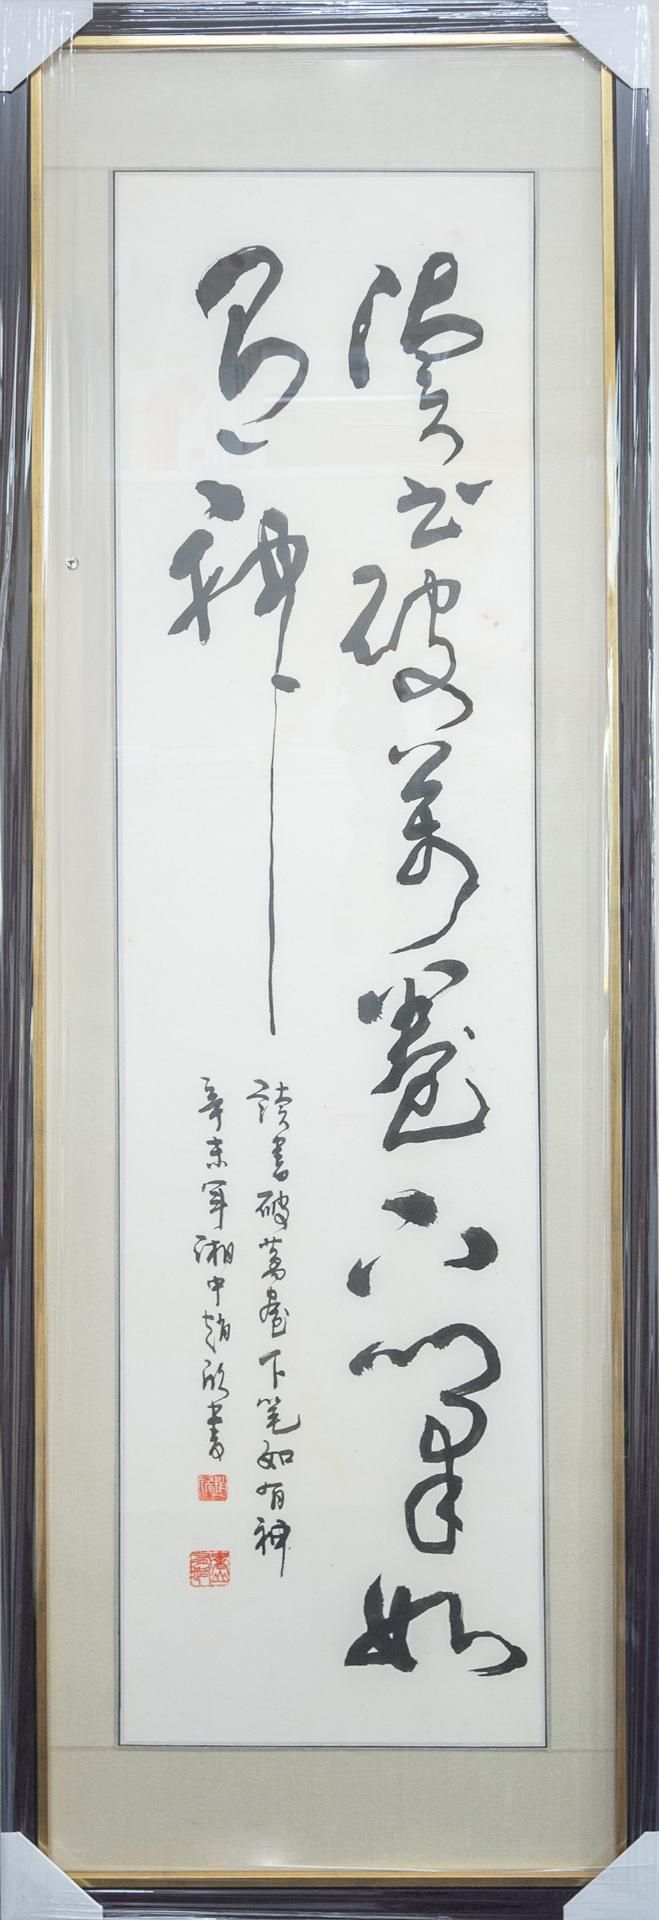 讀书破萬卷下筆如
有神
读書破萬卷下笔如有神
辛未年湘中趙欣書